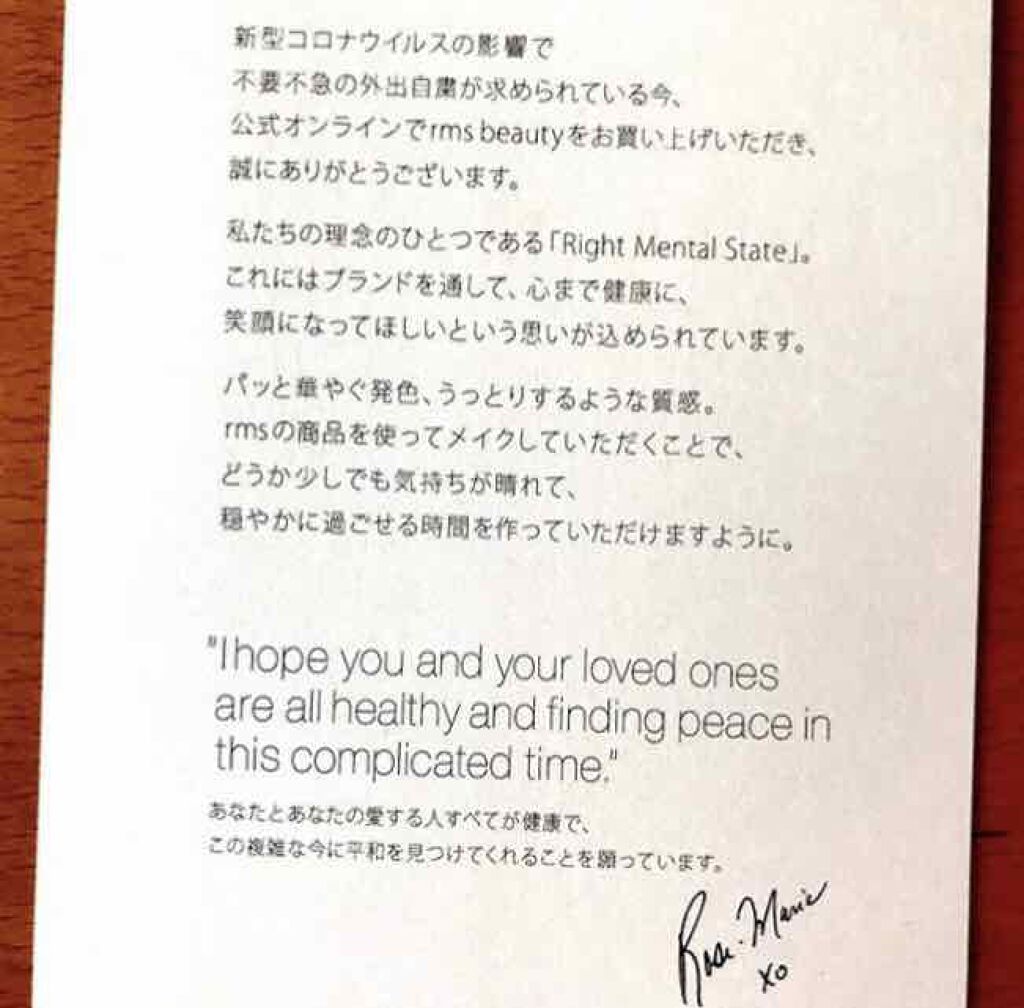 新型コロナウイルスの影響で
不要不急の外出自粛が求められている今、
公式オンラインでrms beautyをお買い上げいただき、
誠にありがとうございます。
私たちの理念のひとつである「Right Mental State」。
これにはブランドを通して、心まで健康に、
笑顔になってほしいという思いが込められています。
パッと華やぐ発色、うっとりするような質感。
rmsの商品を使ってメイクしていただくことで、
どうか少しでも気持ちが晴れて、
穏やかに過ごせる時間を作っていただけますように。
"I hope you and your loved ones
are all healthy and finding peace in
this complicated time."
あなたとあなたの愛する人すべてが健康で、
この複雑な今に平和を見つけてくれることを願っています。
Rose-Marie
xo